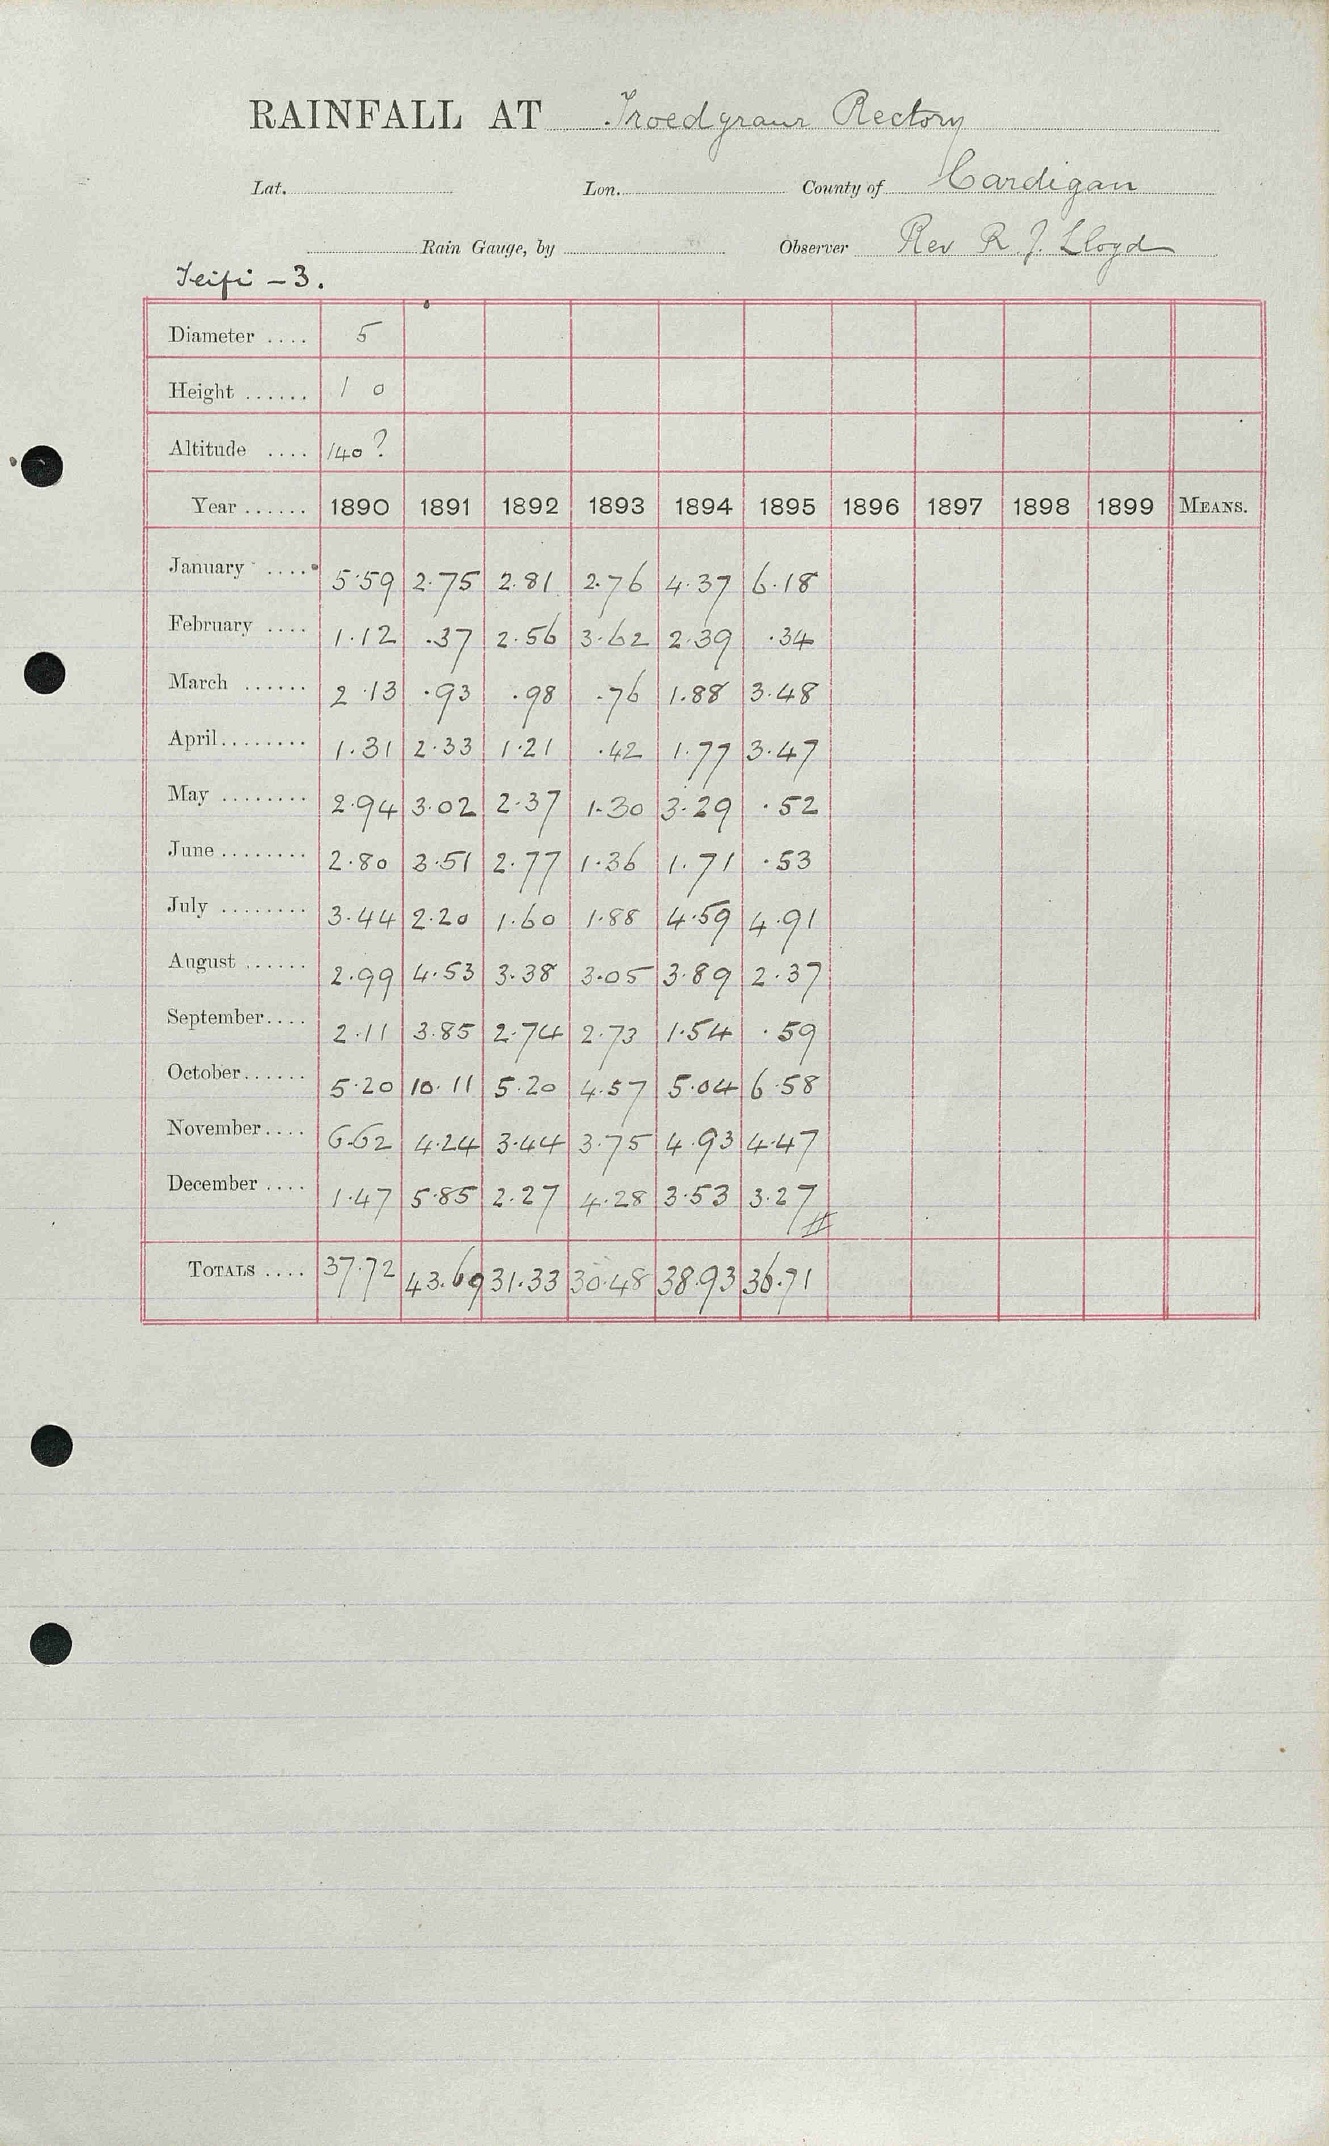 RAINFALL AT Troedyraur Rectory
Lat. Lon. County of Cardigan
Rain Gauge, by Observer Rev R. J. Lloyd
Teifi - 3.
Diameter .... 5
Height ...... 1 0
Altitude .... 140 ?
Year ...... 1890 1891 1892 1893 1894 1895 1896 1897 1898 1899 MEANS.
January .... 5.59 2.75 2.81 2.76 4.37 6.18
February .... 1.12 .37 2.56 3.62 2.39 .34
March ...... 2.13 .93 .98 .76 1.88 3.48
April ........ 1.31 2.33 1.21 .42 1.77 3.47
May ........ 2.94 3.02 2.37 1.30 3.29 .52
June ........ 2.80 3.51 2.77 1.36 1.71 .53
July ........ 3.44 2.20 1.60 1.88 4.59 4.91
August ...... 2.99 4.53 3.38 3.05 3.89 2.37
September .... 2.11 3.85 2.74 2.73 1.54 .59
October ...... 5.20 10.11 5.20 4.57 5.04 6.58
November .... 6.62 4.24 3.44 3.75 4.93 4.47
December .... 1.47 5.85 2.27 4.28 3.53 3.27
TOTALS .... 37.72 43.69 31.33 30.48 38.93 36.71